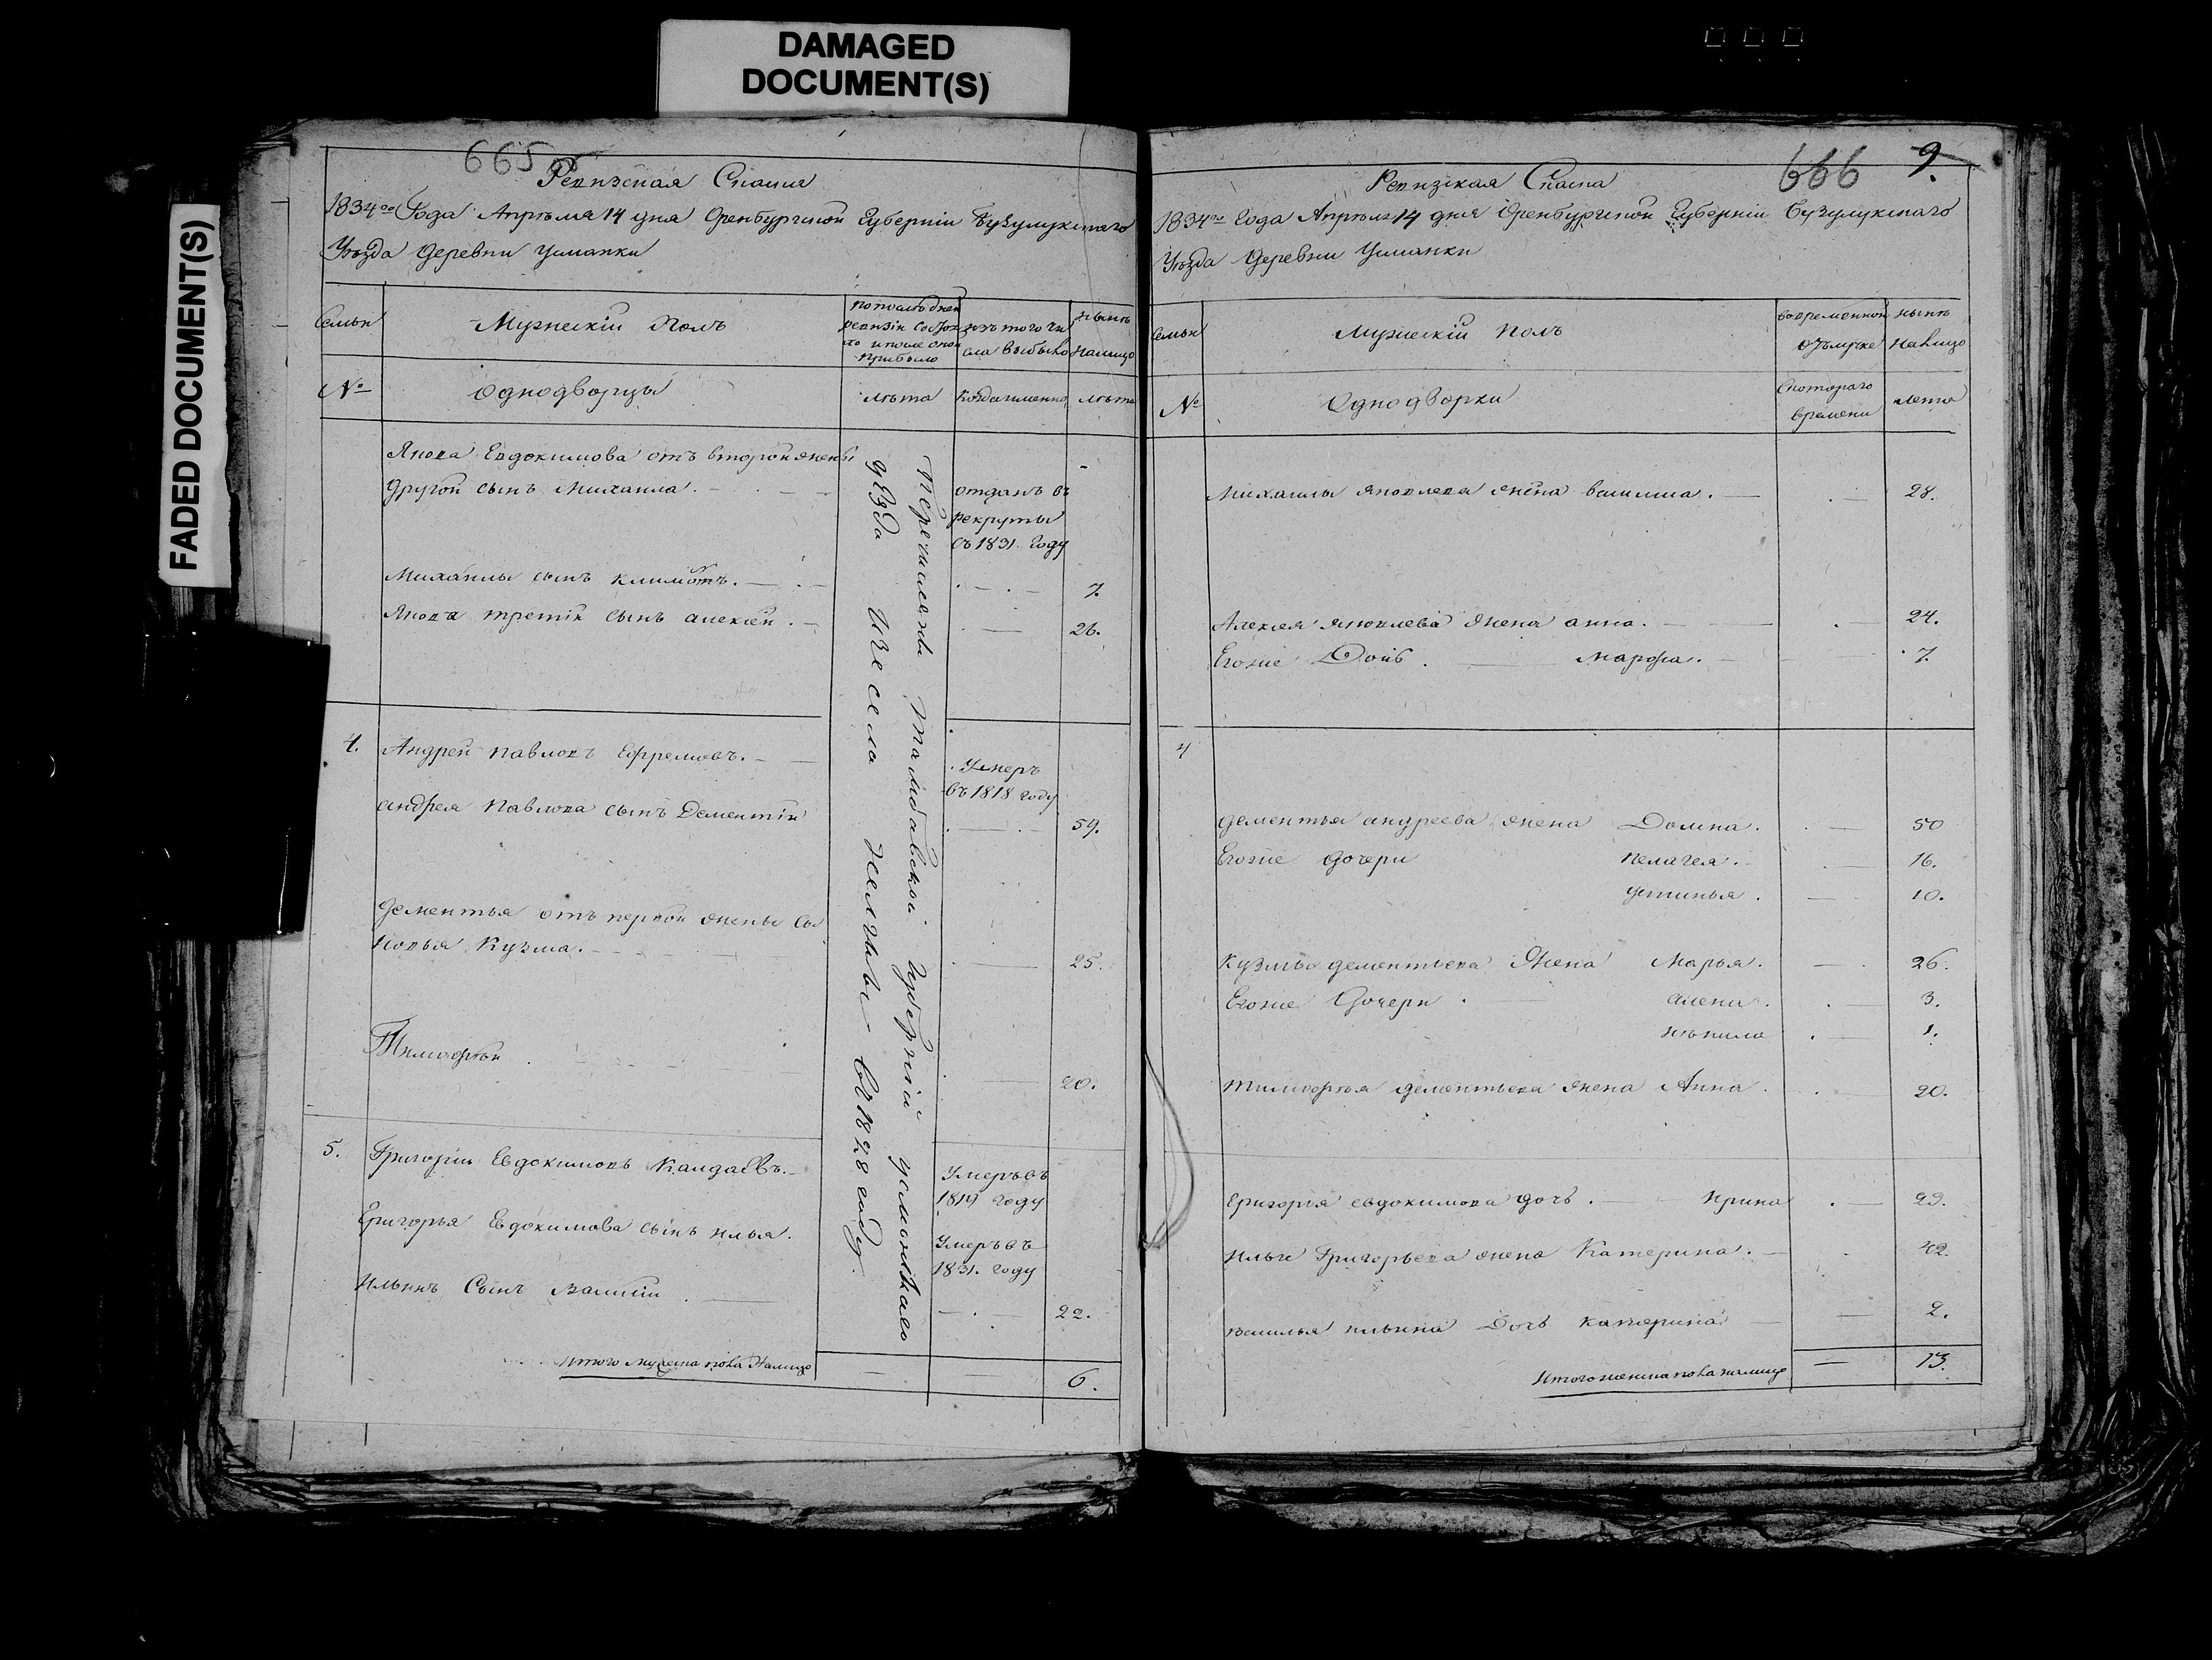 DAMAGED
DOCUMENT(S)
FADED DOCUMENT(S)
665
Ревизская Сказка
1834го Года Апреля 14 дня Оренбургской Губернiи Бузулукскаго
Уезда Деревни Усманки
Семьи
Мужескiй Полъ
по последней
ревизiи Состоя
ло и после оной
прибыло
изъ того чи
сла выбыло
ныне
налицо
№
Однодворцы
лета
когда именно
лета
Якова Евдокимова отъ второй жены
другой сынъ Михаила.
отданъ въ
рекруты
въ 1831 году
Михайлы сынъ
7.
Якова третiй сынъ алексей.
26.
Перечислены Тамбовской Губернiи усманскаго
уезда изъ села въ 1828 году
4. Андрей павловъ Ефремовъ.
Умеръ
въ 1818 году
андрея павлова сынъ Дементiй
59.
дементья отъ первой жены сы
новья Кузма.
25.
Тимофей
20.
5. Григорiй Евдокимовъ
Умеръ въ
году
Григорья Евдокимова сынъ илья.
Умеръ въ
1831. году
Ильинъ Сынъ Василiй
22.
итого мужеска пола Налицо
6.
666
9.
Ревизкая Сказка
1834го Года Апреля 14 дня Оренбургской Губернiи Бузулукскаго
Уезда Деревни Усманки
Семьи
Мужескiй полъ
во временной
отлучке
ныне
налицо
№
Однодворки
Скотораго
времени
лета
Михайлы яковлева жена василиса.
28.
Алексея яковлева жена анна.
24.
Егоже Дочь. Марфа.
7.
4
дементья андреева жена Домна.
50
Егоже дочери пелагея.
16.
устинья.
10.
Кузмы дементьева Жена Марья.
26.
Егоже Дочери алена.
3.
1.
тимофья дементьева жена Анна.
20.
Григорья евдокимова дочь. Ирина
Ильи Григорьева жена Катерина.
42.
василья ильина Дочь катерина
2.
Итого женска пола налицо
13.